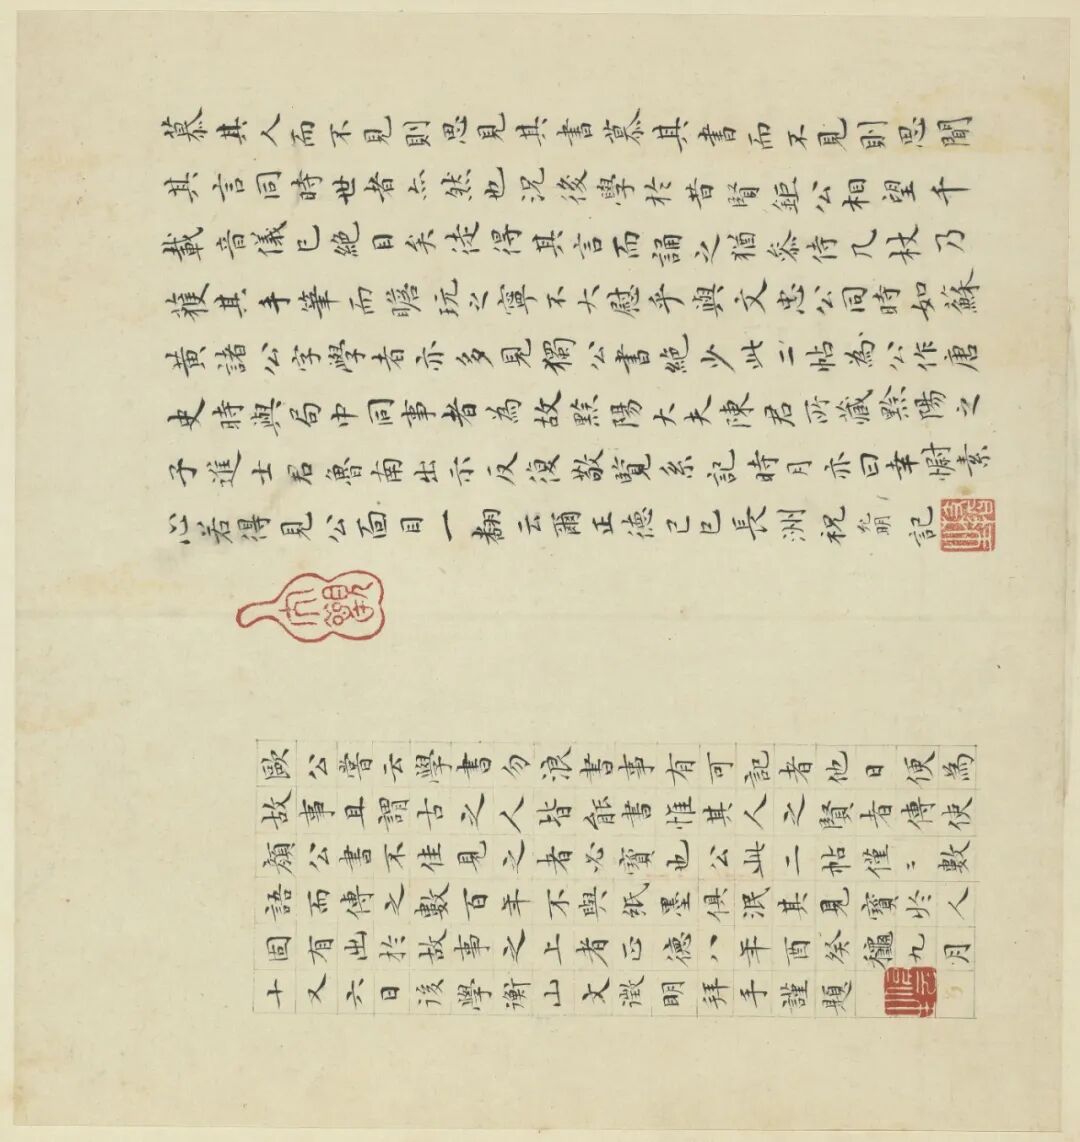 慕其人而不見則思見其書慕其書而不見則思聞
其言同時世者亦然也況後學於昔賢鉅公相望千
載音儀已絕目矣徒得其言而誦之猶叅侍几杖乃
獲其手筆而瞻玩之寧不大慰乎與文忠公同時如蘇
黃諸公字學者亦多見獨公書絕少此二帖為公作唐
史時與局中同事者為故黔陽大夫陳君所藏黔陽之
子進士君魯南出示反復敬覽系記時月亦曰幸慰素
心若得見公面目一翻云爾正德己巳長洲祝允明記
歐公嘗云學書勿浪書事有可記者他日便為
故事且謂古之人皆能書惟其人之賢者傳使
顏公書不佳見之者必寶也公此二帖僅〻數
語而傳之數百年不與紙墨俱泯其見寶於人
固有出於故事之上者正德八年癸酉龝九月
十又六日後學衡山文徵明拜手謹題